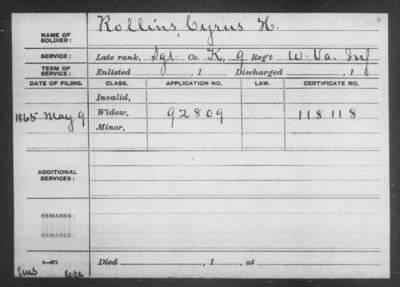 NAME OF SOLDIER: Rollins, Cyrus H.
SERVICE: Late rank, Sgt. Co. K, 9 Reg't W. Va. Inf
TERM OF SERVICE: Enlisted , 1 Discharged , 1
DATE OF FILING. CLASS. APPLICATION NO. LAW. CERTIFICATE NO.
Invalid,
1865 May 9 Widow, 92809 118118
Minor,
ADDITIONAL SERVICES:
REMARKS:
REMARKS:
Died , 1 , at